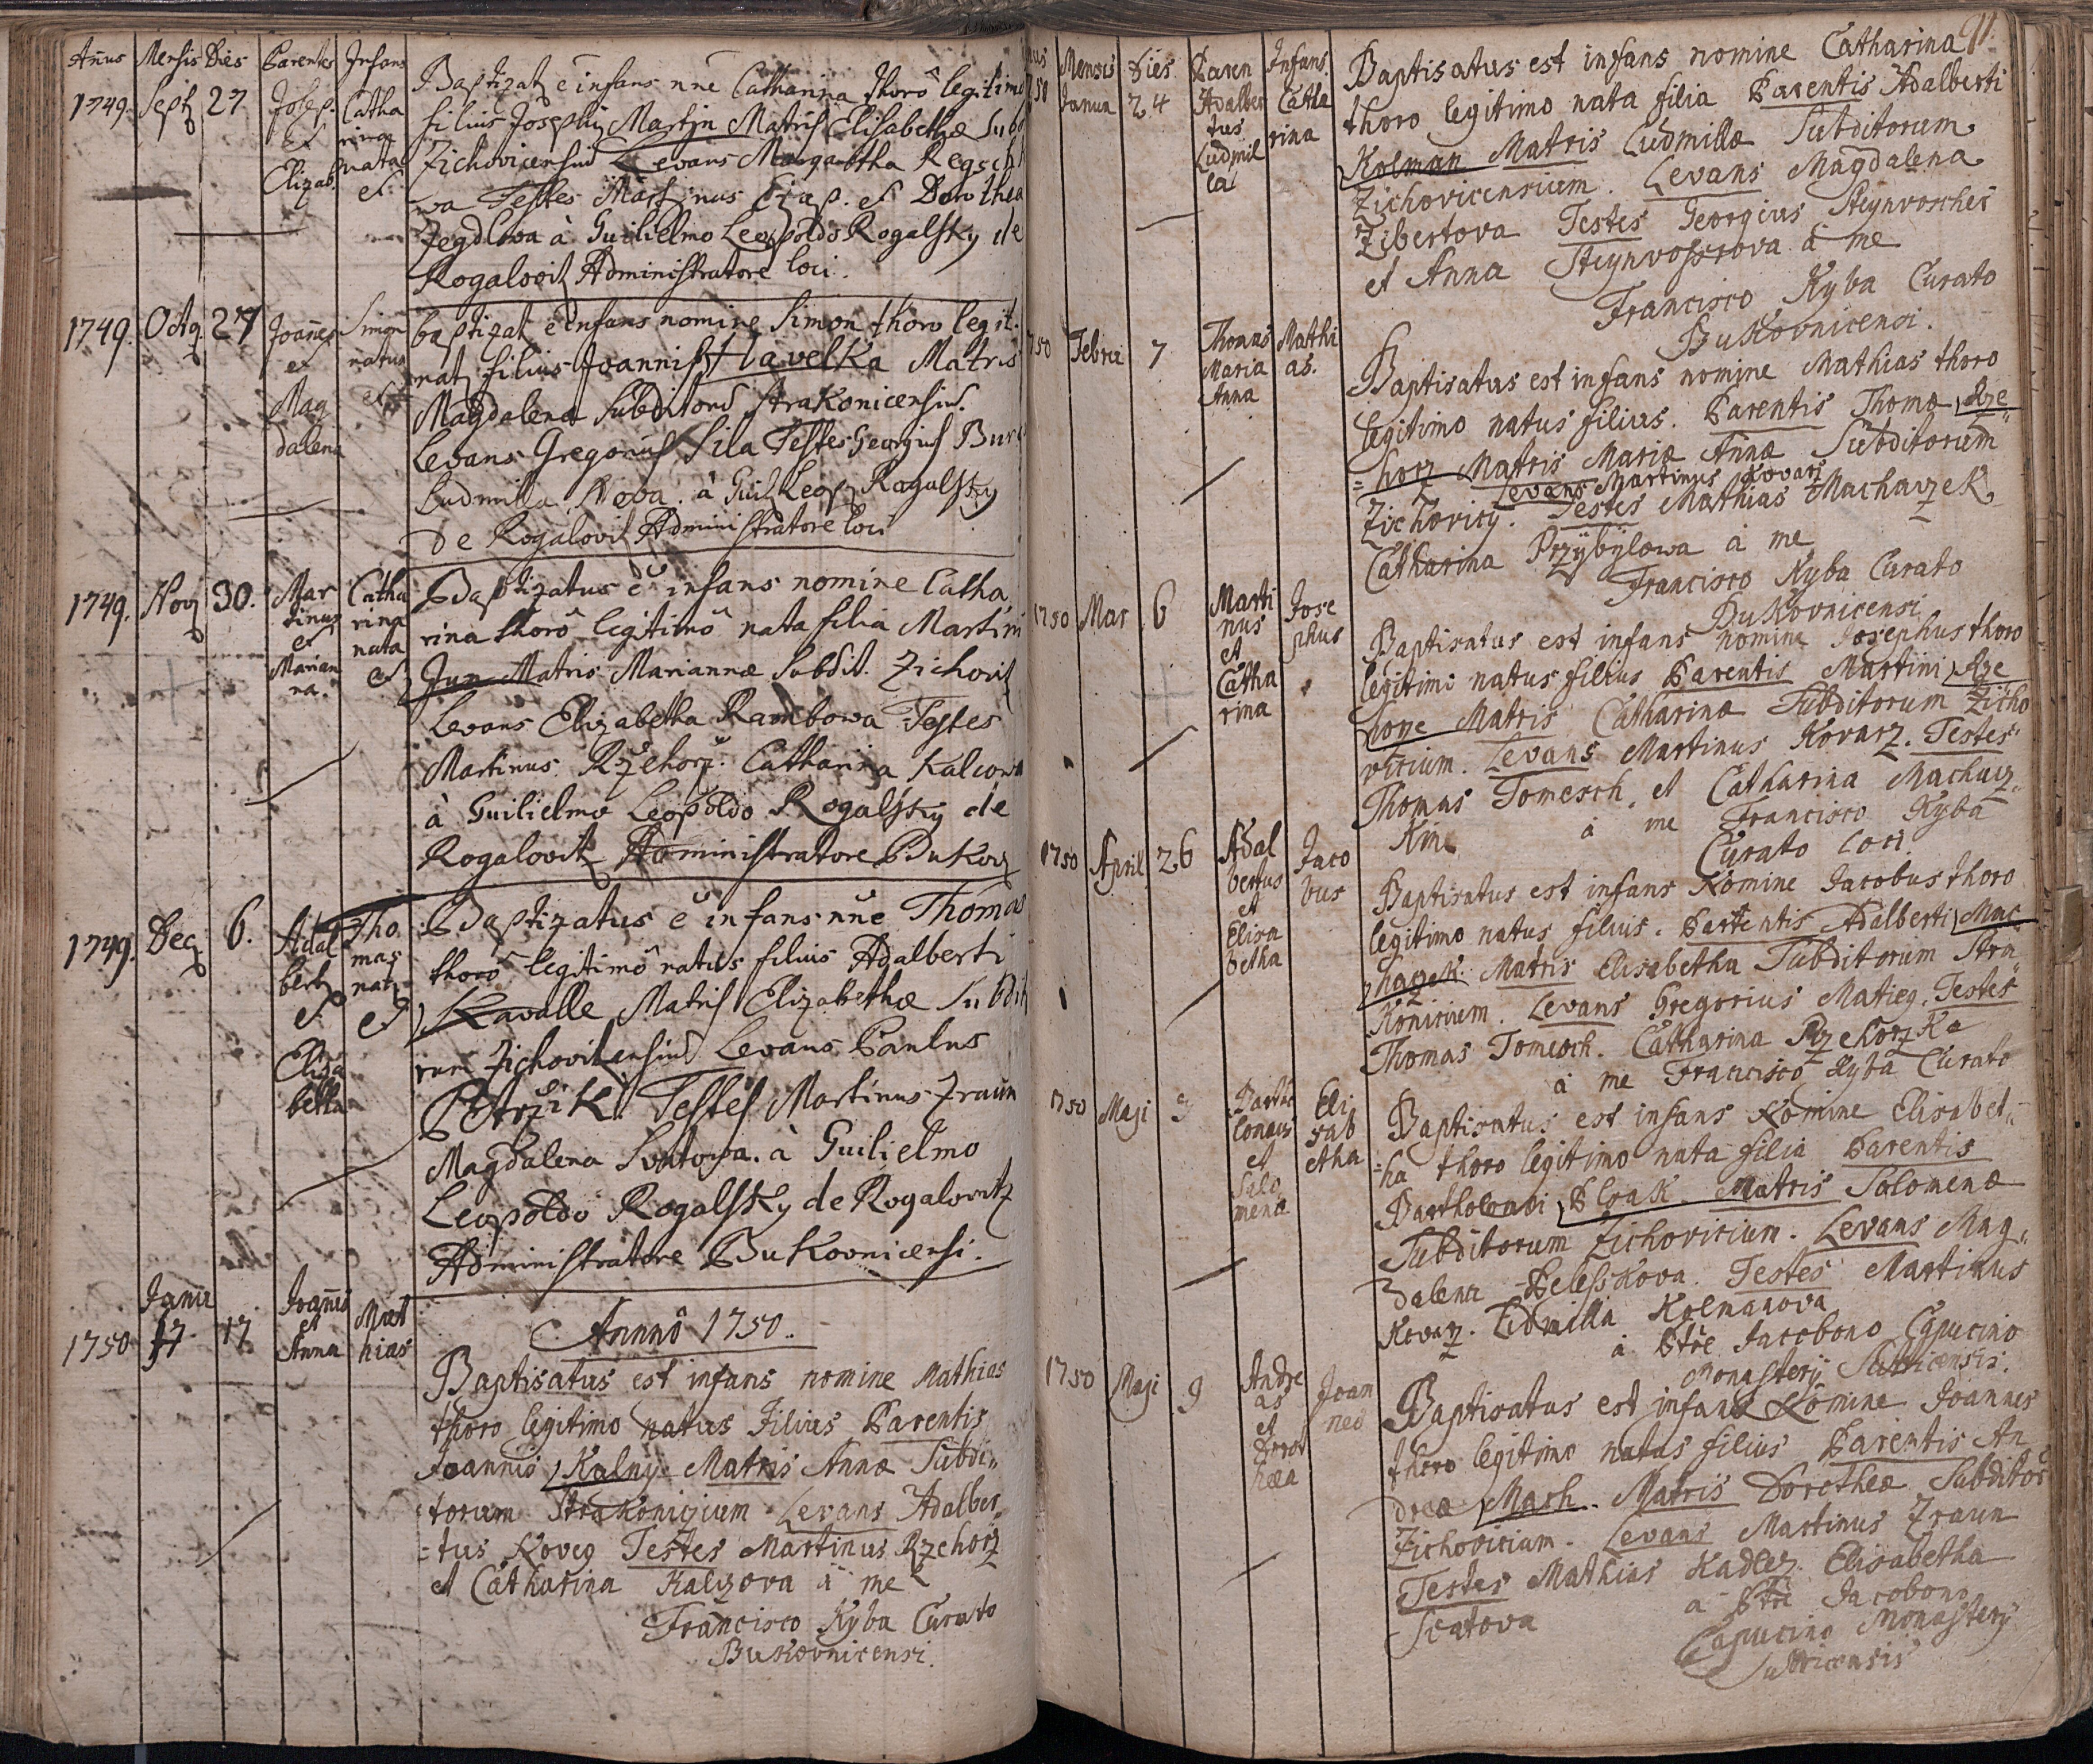 Añus Mensis Dies Parentes Infans
1749. Sept 27 Josep. et Elizab. Catha rina nata e
Baptizat e infans nne Catharina thorô legitimo
filius Josephi Martin Matris Elisabethæ Subd
Zichovicensium Levans Margaretha Regsch
va Testes Martinus et Dorothea
Zegdlova à Guilielmo Leopoldo Rogalsky de
Rogalovitz Administratore loci.
1749. Octo 27 Joañes et Mag dalena Simon natus est
baptizat e infans nomine Simon thoro legit.
nat filius Joannis Havelka Matris
Magdalena Subditorũ Strakonicensiũ.
Levans Gregorius Sila Testes Georgius Bur
Ludmilla à Guil Leop Rogalsky
De Rogalovitz Administratore loci
1749. Nov 30. Mar tinus et Marian na. Catha rina nata e
Baptizatus e infans nomine Catha
rina thorô legitimô nata filia Martini
Jun Matris Mariannæ Subdit. Zichovit
Levans Elizabetha Rambowa Testes
Martinus Rzehorz. Catharina Kalcowa
à Guilielmo Leopoldo Rogalsky de
Rogalovitz Administratore Bukov
1749. Dec 6. Adal bert et Eliza betha Tho mas nat e
Baptizatus e infans nñe Thomas
thorô legitimô natus filius Adalberti
Kavalle Matris Elizabethæ Subdit
rum Zichovitzensiũ Levans Paulus
Petrzik Testes Martinus Zraun
Magdalena Svatowa. à Guilielmo
Leopoldo Rogalsky de Rogalovitz
Administratore Bukovnicensi.
Annô 1750.
1750 Janu 17 17 Joañes et Anna Mat hias
Baptisatus est infans nomine Mathias
thoro legitimo natus Filius Parentis
Joannis Kalny Matris Annæ Subdi
torum Strakonicium Levans Adalber
=tus Koveg Testes Martinus Rzehorz
et Catharina Kalczova à me
Francisco Kyba Curato
Bukovnicensi.
91.
Mensis Dies Paren Infans.
Janua 24 Adalber tus Ludmil la Catha rina
Baptisatus est infans nomine Catharina
thoro legitimo nata filia Parentis Adalberti
Kolman Matris Ludmillæ Subditorum
Zichovicensium. Levans Magdalena
Zibertova Testes Georgius Steynvoscher
et Anna Steynvossrova à me
Francisco Kyba Curato
Bukovnicensi.
750 Febru 7 Thomas Maria Anna Matthi as.
Baptisatus est infans nomine Mathias thoro
legitimo natus filius. Parentis Thomæ Rze
=horz Matris Mariæ Annæ Subditorum
Levans Martinus Kovarz
Zichovicy. Testes Mathias Macharzek
Catharina Przybylowa à me
Francisco Kyba Curato
Bukovnicensi
1750 Mar 6 Marti nus et Catha rina Jose phus
Baptisatus est infans nomine Josephus thoro
legitimi natus filius Parentis Martini Rze
horze Matris Catharinæ Subditorum Zicho
vicium. Levans Martinus Kovarz. Testes
Thomas Tomesch. et Catharina Macharz
Kine à me Francisco Kyba
Curato loci
1750 April 26 Adal bertus et Elisa betha Jaco bus
Baptisatus est infans Nomine Jacobus thoro
legitimo natus filius. Parentis Adalberti Mac
hazek. Matris Elisabetha Subditorum Stra
Konicium. Levans Gregorius Matieg. Testes
Thomas Tomesch. Catharina Rzehorzka
à me Francisco Kyba Curato
1750 Maji 3 Bartho lomæus et Salo mena Eli sab etha
Baptisatus est infans Nomine Elisabet
=ha thoro legitimo nata filia Parentis
Bartholomæi Matris Salomenæ
Subditorum Zichovicium. Levans Mag
dalena Belesskova. Testes Martinus
Kovarz. Ludmilla Kolmanova
à Ptre Jacobono Capucino
Monastery Sutticensis.
1750 Maji 9 Andre as et Dorot hæa Joan nes
Baptisatus est infans Nomine Joannes
thoro legitimo natus filius Parentis An
dreæ Mash. Matris Dorotheæ Subditor
Zichovicium. Levans Martinus Zraun
Testes Mathias Kadlez. Elisabetha
Scatova à Ptre Jacobono
Capucino Monastery
Sutticensis